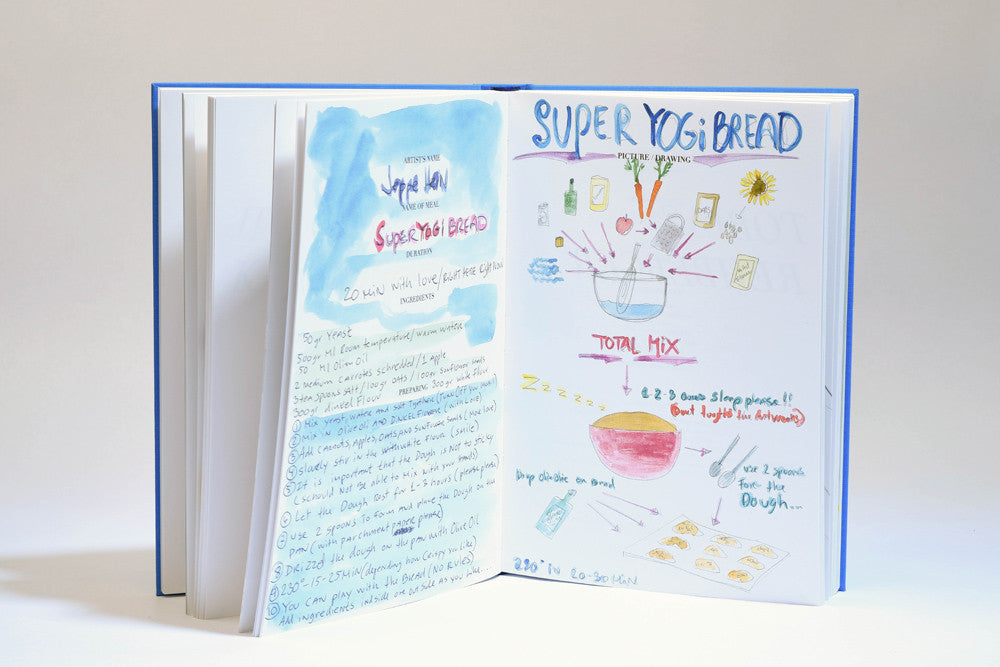 ARTIST'S NAME
Jeppe Hein
NAME OF MEAL
SUPER YOGI BREAD
DURATION
20 MIN with love/RIGHT HERE RIGHT NOW
INGREDIENTS
50gr Yeast
500gr Ml Room temperature/warm water
50 Ml Olive Oil
2 medium carrotes schredded/1 Apple
Spoons Salt/100gr oats/100gr Sunflower seeds
300gr dinkel Flour 300gr white Flour
PREPARING
① Mix yeast, water and salt Together (Turn OFF you
② Mix in Olive Oil AND DINKEL Flower (with Love)
③ Add carrots, Apples, Oats and Sunflower seeds (more love)
④ Slowly stir in the white Flour (smile)
⑤ It is important that the Dough is Not to sticky
(should Not Be able to Mix with your hands)
⑥ Let the Dough Rest for 1-3 hours (please please)
⑦ use 2 spoons To Form and place the Dough on the
pan (with parchment paper please)
⑧ DRizzel the dough on the pan with Olive Oil
⑨ 230° - 15-25 MIN (depending how crispy you like)
⑩ YOU CAN play with the Bread (NO RULES)
Add ingredients inside or outside as you like...
SUPER YOGi BREAD
PICTURE / DRAWING
OATS
TOTAL MIX
Z Z Z Z Z Z
1-2-3 hours Sleep please!!
use 2 spoons
For the
Dough...
Drop Olive Olie on Bread
230° in 20-30 MiN